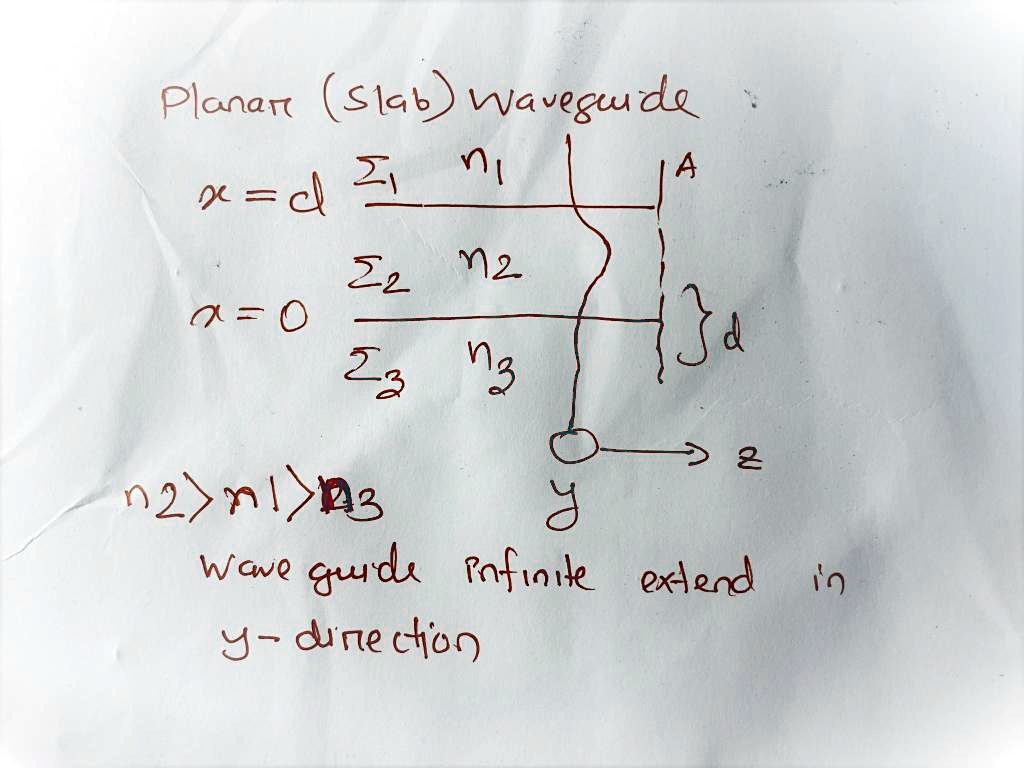 Planar (Slab) Waveguide
x = d Σ1 n1 A
Σ2 n2
x = 0
Σ3 n3 } d
z
n2 > n1 > n3 y
Wave guide infinite extend in
y - direction